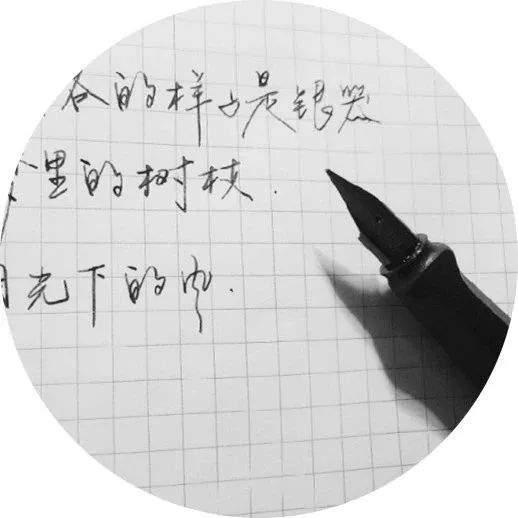 的样子是银器
里的树枝.
月光下的